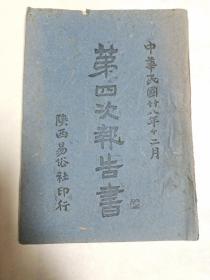 中華民國廿八年十二月
第四次報告書
陝西易俗社印行